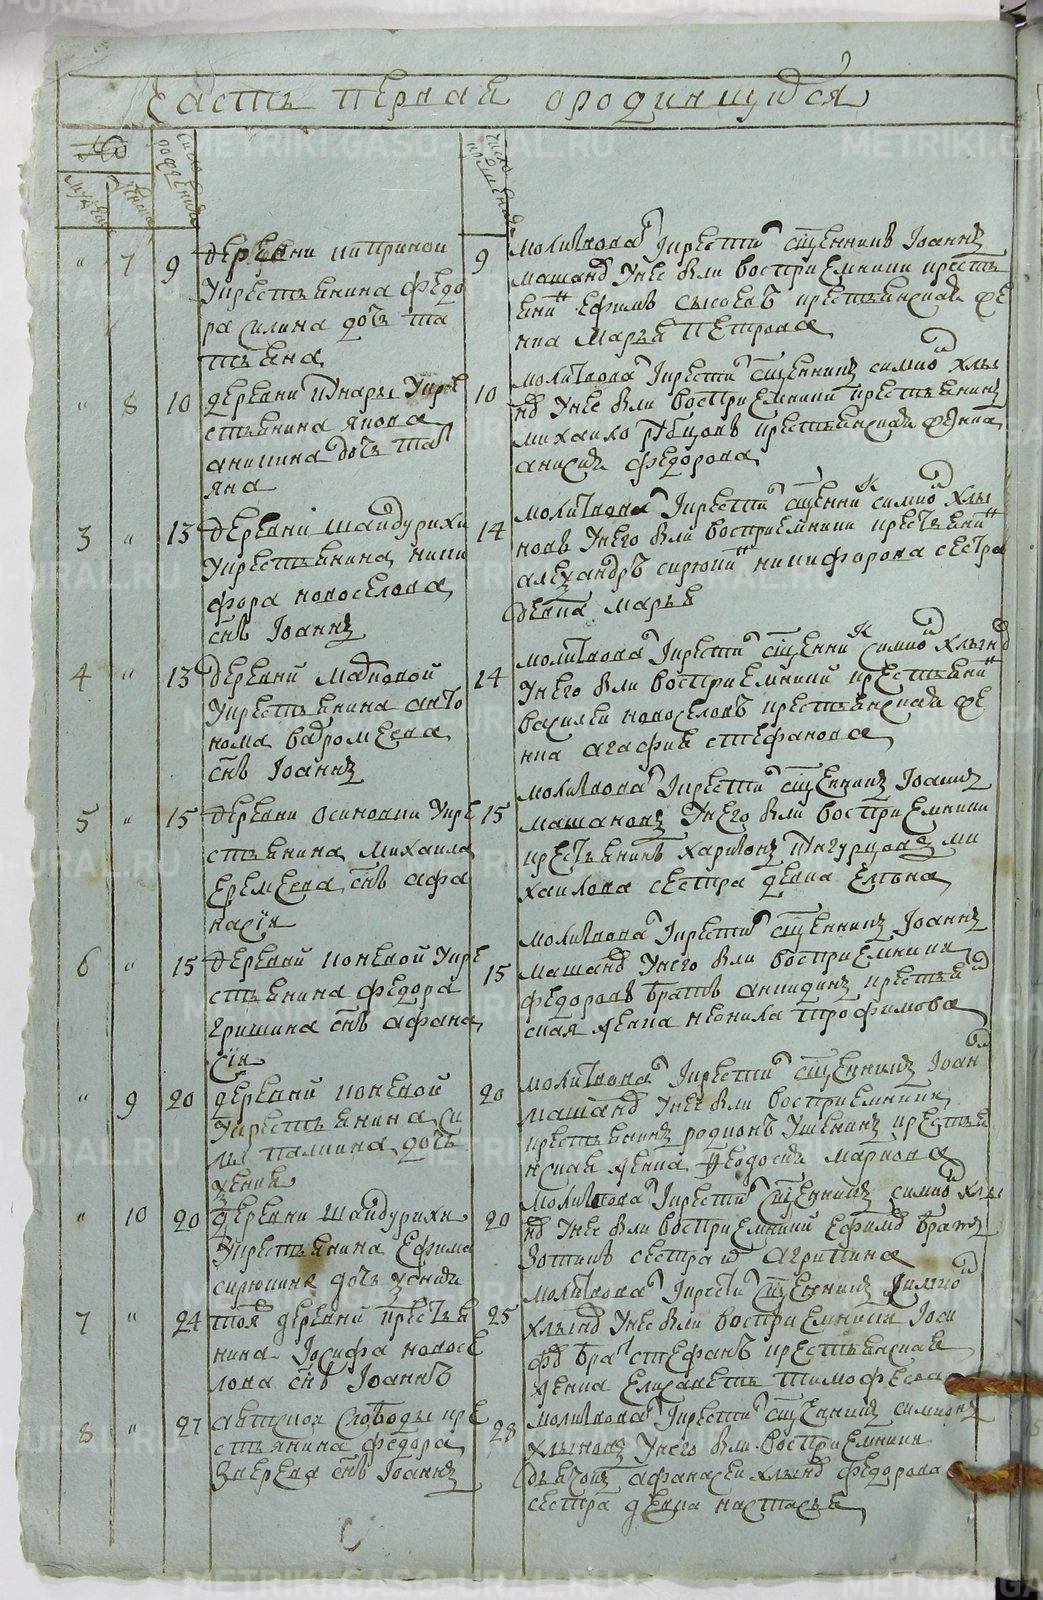 Часть первая о родившихся
№
число рождения
число крещения
мужеска
женска
" 7 9 деревни
у крестьянина Федо
ра Силина дочь Та
тьяна
9 молитвовал и крестил священник Иоанн
Машанов у нее были восприемники кресть
янин Ефим Сысоев крестьянская же
нка Марья Петрова
" 8 10 деревни у кре
стьянина Якова
Аникина дочь Тать
яна
10 молитвовал и крестил священник Симион Хлы
нов у нее были восприемники крестьянин
Михайло Рябцов крестьянская женка
Анисия Федорова
3 " 13 деревни Шайдурихи
у крестьянина Ники
фора Новоселова
сын Иоанн
14 молитвовал и крестил священник Симион Хлы
нов у него были восприемники крестьянин
Александр Сирюкин Никифорова сестра
девка Марья
4 " 13 деревни
у крестьянина Анто
нома Вафромеева
сын Иоанн
14 молитвовал и крестил священник Симион Хлынов
у него были восприемники крестьянин
Василей Новоселов крестьянская же
нка Агафия Стефанова
5 " 15 деревни Осиновки у кре
стьянина Михаила
Еремеева сын Афа
насия
15 молитвовал и крестил священник Иоанн
Машанов у него были восприемники
крестьянин Харитон Ми
хайлова сестра девка Елена
6 " 15 деревни Коневой у кре
стьянина Федора
Гришина сын Афана
сия
15 молитвовал и крестил священник Иоанн
Машанов у него были восприемники
Федоров брат крестьян
ская женка Неонила Трофимова
" 9 20 деревни Коневой
у крестьянина Си
лы Палкина дочь
Ксения
20 молитвовал и крестил священник Иоан
Машанов у нее были восприемники
крестьянин Родион крестья
нская женка Феодосия Маркова
" 10 20 деревни Шайдурихи
у крестьянина Ефима
Сирюкина дочь Ксения
20 молитвовал и крестил священник Симион Хлы
нов у нее были восприемники Ефимов брат
Зотик сестра Агрипина
7 " 24 той деревни крестья
нина Иосифа Новосе
лова сын Иоанн
25 молитвовал и крестил священник Симион
Хлынов у нее были восприемники Иоси
фов брат Стефан крестьянская
женка Елизавета Тимофеева
8 " 27 Аятской слободы кре
стьянина Федора
Зверева сын Иоанн
28 молитвовал и крестил священник Симион
Хлынов у него были восприемники
дьячок Афанасей Хлынов Федорова
сестра девка Настасья
METRIKI.GASO-URAL.RU